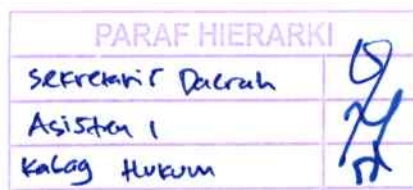 PARAF HIERARKI
Sekretaris Daerah
Asisten 1
Kabag Hukum